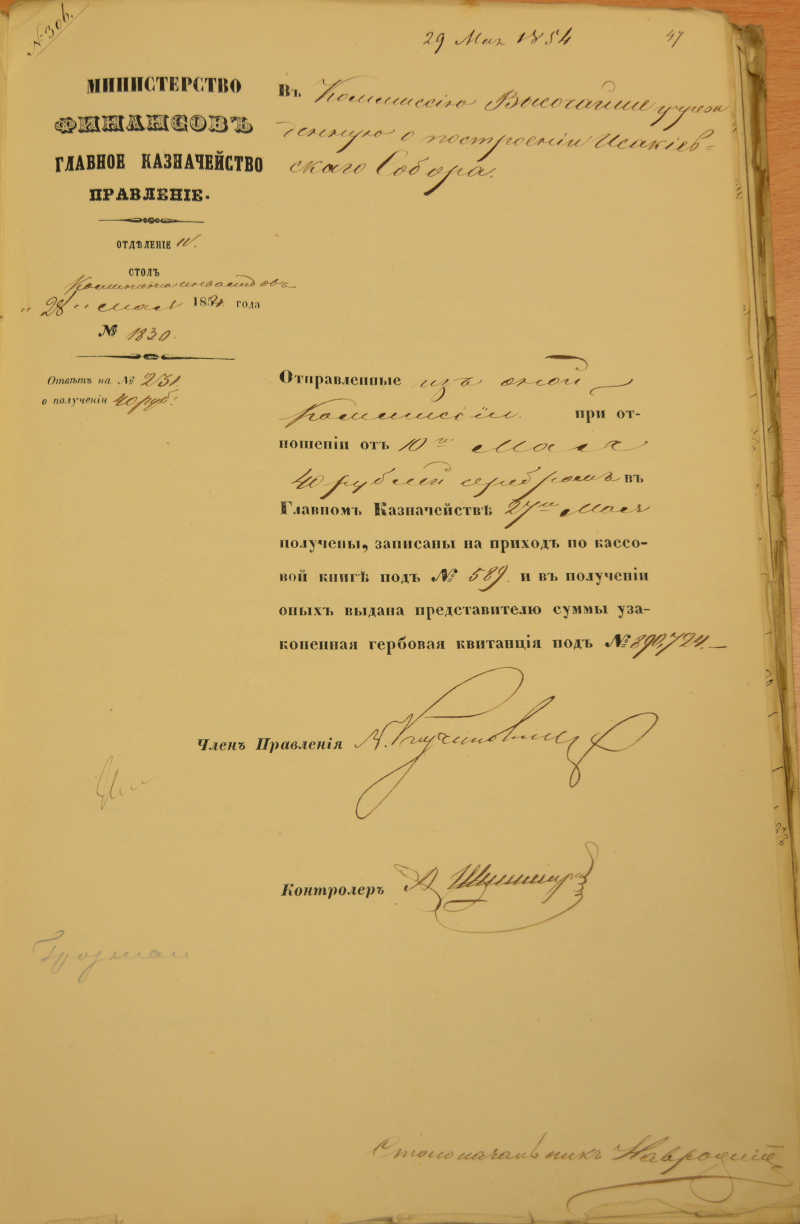 № 306.
29 Мая 1854
47
МИНИСТЕРСТВО
ФИНАНСОВЪ
ГЛАВНОЕ КАЗНАЧЕЙСТВО
ПРАВЛЕНІЕ.
ОТДѢЛЕНІЕ
СТОЛЪ
„28" мая 1854 года
№ 1830.
Отвѣтъ на № 231
о полученіи 40 руб.
Въ Коммиссію Высочайше учреж
денную о построеніи Исакіев-
скаго Собора.
Отправленные изъ оной
Коммиссіи при от-
ношеніи отъ 10го Мая
40 рублей серебромъ въ
Главномъ Казначействѣ 27го Мая
получены, записаны на приходъ по кассо-
вой книгѣ подъ № 589. и въ полученіи
оныхъ выдана представителю суммы уза-
коненная гербовая квитанція подъ № 890,724.
Членъ Правленія
Контролеръ
Столоначальникъ